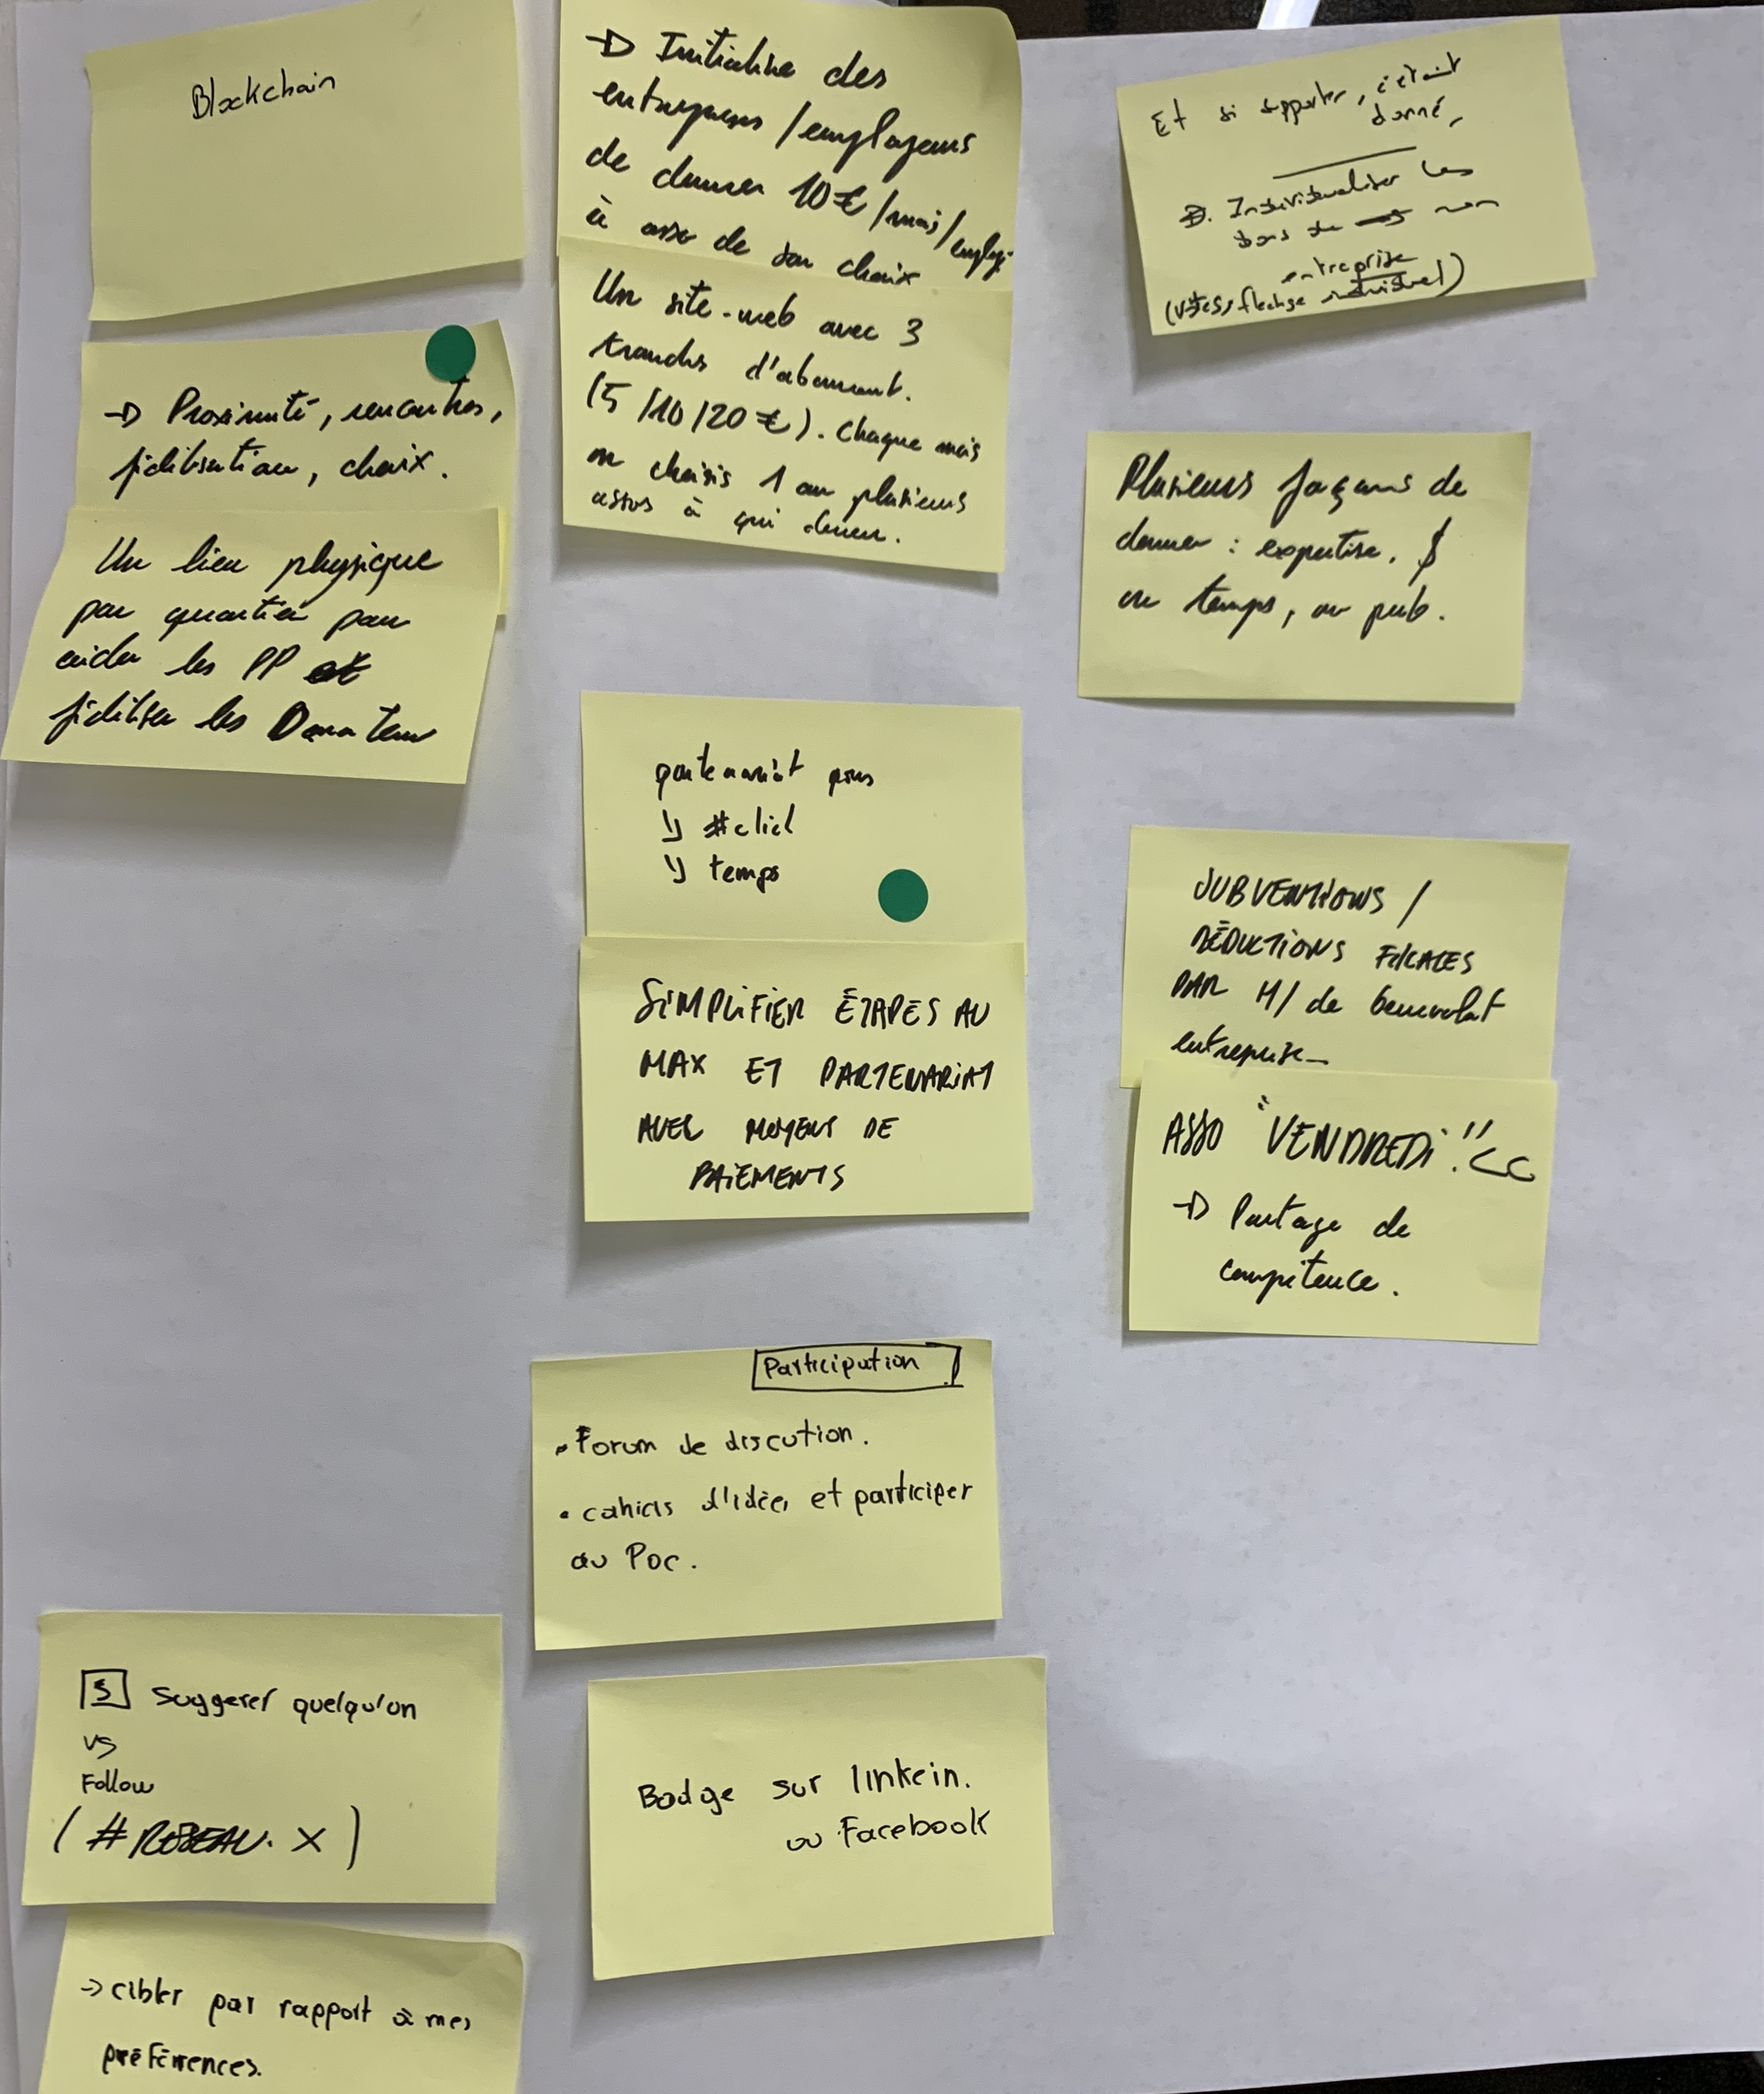 Blockchain
→ Proximité, rencontres,
fidélisation, choix.
Un lieu physique
par quartier pour
aider les PP et
fidéliser les Donateur
→ Initiative des
entreprises / employeurs
de donner 10€/mois/employé
à asso de son choix
Un site-web avec 3
tranches d'abonnement.
(5/10/20€). Chaque mois
on choisis 1 ou plusieurs
assos à qui donner.
partenariat pour
↳ #click
↳ temps
SIMPLIFIER ÉTAPES AU
MAX ET PARTENARIAT
AVEC MOYENS DE
PAIEMENTS
Participation
• Forum de discution.
• cahiers d'idées et participer
au Poc.
Badge sur linkein.
ou Facebook
S suggerer quelqu'un
vs
Follow
(#RESEAU. X)
→ cibler par rapport à mes
préférences.
Et si supporter, c'était
donné,
Individualiser les
dons de mon
entreprise
(votes, flechage individuel)
Plusieurs façons de
donner : expertise, $
ou temps, ou pub.
SUBVENTIONS /
RÉDUCTIONS FISCALES
PAR H/ de benevolat
entreprise_
ASSO "VENDREDI"
→ Partage de
compétence.